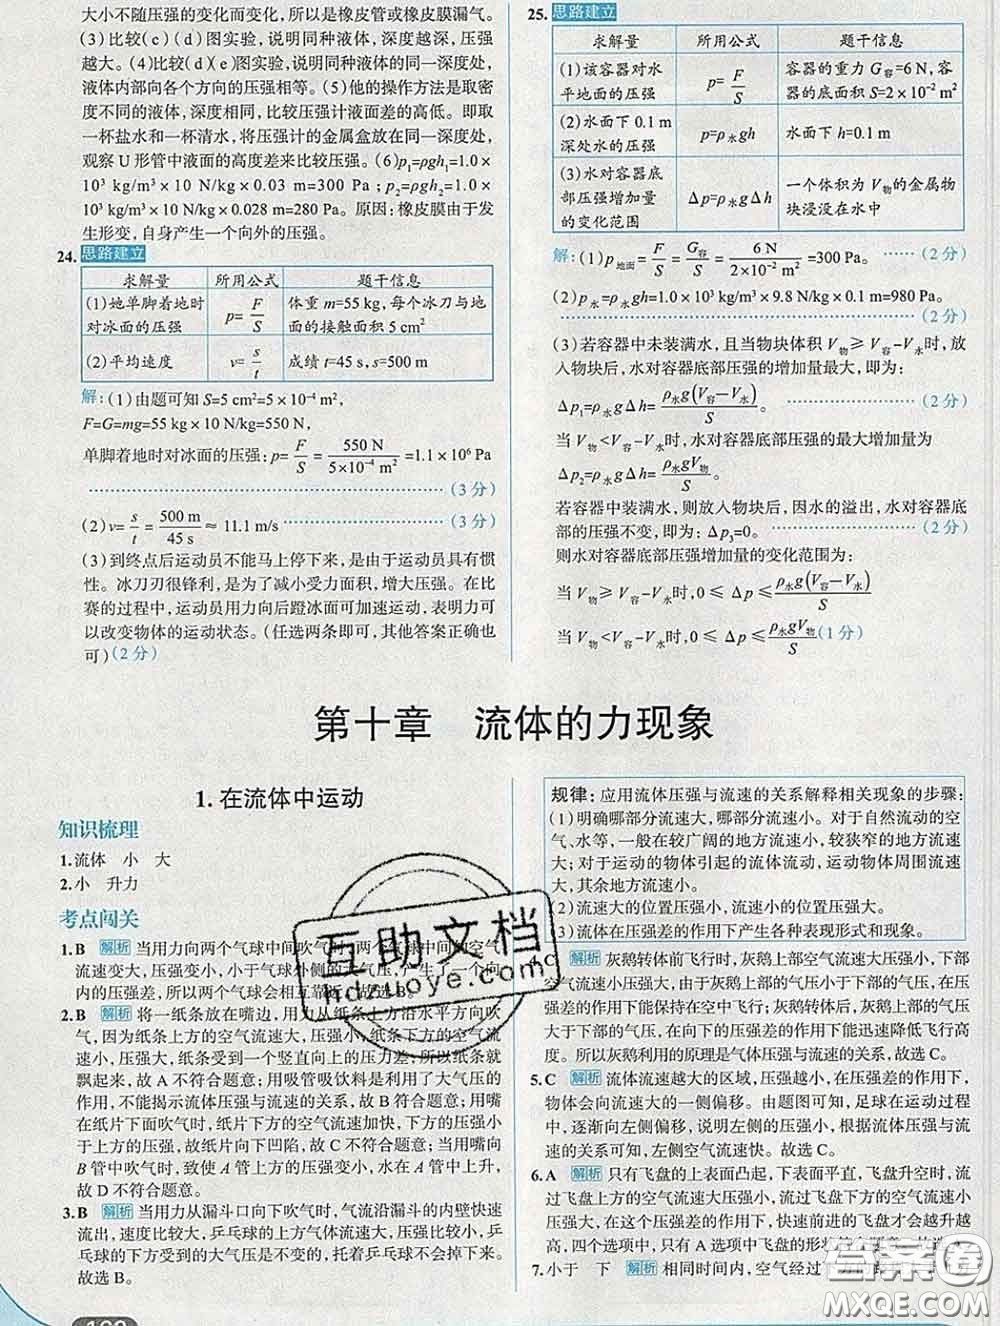 大小不随压强的变化而变化，所以是橡皮管或橡皮膜漏气。
(3)比较(c)(d)图实验，说明同种液体，深度越深，压强
越大。(4)比较(d)(e)图实验，说明同种液体的同一深度处，
液体内部向各个方向的压强相等。(5)他的操作方法是取密
度不同的液体，深度相同，比较压强计液面差的高低。即取
一杯盐水和一杯清水，将压强计的金属盒放在同一深度处，
观察 U 形管中液面的高度差来比较压强。(6)p₁=ρgh₁=1.0×
10³ kg/m³×10 N/kg×0.03 m=300 Pa；p₂=ρgh₂=1.0×
10³ kg/m³×10 N/kg×0.028 m=280 Pa。原因：橡皮膜由于发
生形变，自身产生一个向外的压强。
24. 思路建立
求解量 所用公式 题干信息
(1)她单脚着地时对冰面的压强 p=F/S 体重 m=55 kg，每个冰刀与地面的接触面积 5 cm²
(2)平均速度 v=s/t 成绩 t=45 s，s=500 m
解：(1)由题可知 S=5 cm²=5×10⁻⁴ m²，
F=G=mg=55 kg×10 N/kg=550 N，
单脚着地时对冰面的压强：p=F/S=550 N/5×10⁻⁴ m²=1.1×10⁶ Pa
(3分)
(2)v=s/t=500 m/45 s≈11.1 m/s (3分)
(3)到终点后运动员不能马上停下来，是由于运动员具有惯
性。冰刀刃很锋利，是为了减小受力面积，增大压强。在比
赛的过程中，运动员用力向后蹬冰面可加速运动，表明力可
以改变物体的运动状态。(任选两条即可，其他答案正确也
可)(2分)
25. 思路建立
求解量 所用公式 题干信息
(1)该容器对水平地面的压强 p=F/S 容器的重力 G容=6 N，容器的底面积 S=2×10⁻² m²
(2)水面下 0.1 m 深处水的压强 p=ρ水gh 水面下 h=0.1 m
(3)水对容器底部压强增加量的变化范围 Δp=ρ水gΔh 一个体积为 V物的金属物块浸没在水中
解：(1)p地面=F/S=G容/S=6 N/2×10⁻² m²=300 Pa。 (2分)
(2)p水=ρ水gh=1.0×10³ kg/m³×9.8 N/kg×0.1 m=980 Pa。
(2分)
(3)若容器中未装满水，且当物块体积 V物≥V容−V水时，放
入物块后，水对容器底部压强的增加量最大，即为：
Δp₁=ρ水gΔh=ρ水g(V容−V水)/S。 (2分)
当 V物<V容−V水时，水对容器底部压强的最大增加量为
Δp₂=ρ水gΔh=ρ水gV物/S。
若容器中装满水，则放入物块后，因水的溢出，水对容器底
部的压强不变，即为：Δp₃=0。 (2分)
则水对容器底部压强增加量的变化范围为：
当 V物≥V容−V水时，0≤Δp≤ρ水g(V容−V水)/S
当 V物<V容−V水时，0≤Δp≤ρ水gV物/S(1分)
第十章 流体的力现象
1. 在流体中运动
知识梳理
1.流体 小 大
2.小 升力
考点闯关
1.B 解析 当用力向两个气球中间吹气时，两个气球中间的空气
流速变大，压强变小，小于气球外侧的大气压，产生了一个向
内的压强差，所以两个气球会相互靠近。故选 B。
2.B 解析 将一纸条放在嘴边，用力从纸条上方沿水平方向吹
气，因为纸条上方的空气流速大，压强小，纸条下方的空气流
速小，压强大，纸条受到一个竖直向上的压力差，所以纸条就
飘起来，故 A 不符合题意；用吸管吸饮料是利用了大气压的
作用，不能揭示流体压强与流速的关系，故 B 符合题意；用嘴
在纸片下面吹气时，纸片下方的空气流速加快，下方的压强小
于上方的压强，故纸片向下凹陷，故 C 不符合题意；当用嘴向
B 管中吹气时，致使 A 管上方压强变小，水在 A 管中上升，
故 D 不符合题意。
3.B 解析 当用力从漏斗口向下吹气时，气流沿漏斗的内壁快速
流出，速度比较大，乒乓球的上方气体流速大，压强比较小，乒
乓球的下方受到的大气压是不变的，托着乒乓球不会掉下来。
故选 B。
规律：应用流体压强与流速的关系解释相关现象的步骤：
(1)明确哪部分流速大，哪部分流速小。对于自然流动的空
气、水等，一般在较广阔的地方流速小，较狭窄的地方流速
大；对于运动的物体引起的流体流动，运动物体周围流速
大，其余地方流速小。
(2)流速大的位置压强小，流速小的位置压强大。
(3)流体在压强差的作用下产生各种表现形式和现象。
C 解析 灰鹅转体前飞行时，灰鹅上部空气流速大压强小，下部
空气流速小压强大，由于灰鹅上部的气压小于下部的气压，在压
强差的作用下能保持在空中飞行；灰鹅转体后，灰鹅上部的气压
大于下部的气压，在向下的压强差的作用下能迅速降低飞行高
度。所以灰鹅利用的原理是气体压强与流速的关系，故选 C。
5.C 解析 流体流速越大的区域，压强越小，在压强差的作用下，
物体会向流速大的一侧偏移。由题图可知，足球在运动过程
中，逐渐向左侧偏移，说明左侧的压强小，根据流体压强与流
速的关系可知，左侧空气流速快。故选 C。
6.A 解析 只有飞盘的上表面凸起，下表面平直，飞盘升空时，流
过飞盘上方的空气流速大压强小，流过飞盘下方的空气流速小
压强大，在这个压强差的作用下，快速前进的飞盘才会越升越
高，四个选项中，只有 A 选项中飞盘的形状
7.小于 下 解析 相同时间内，空气经过下方
互助文档
hdzuoye.com
答案圈
MXQE.COM